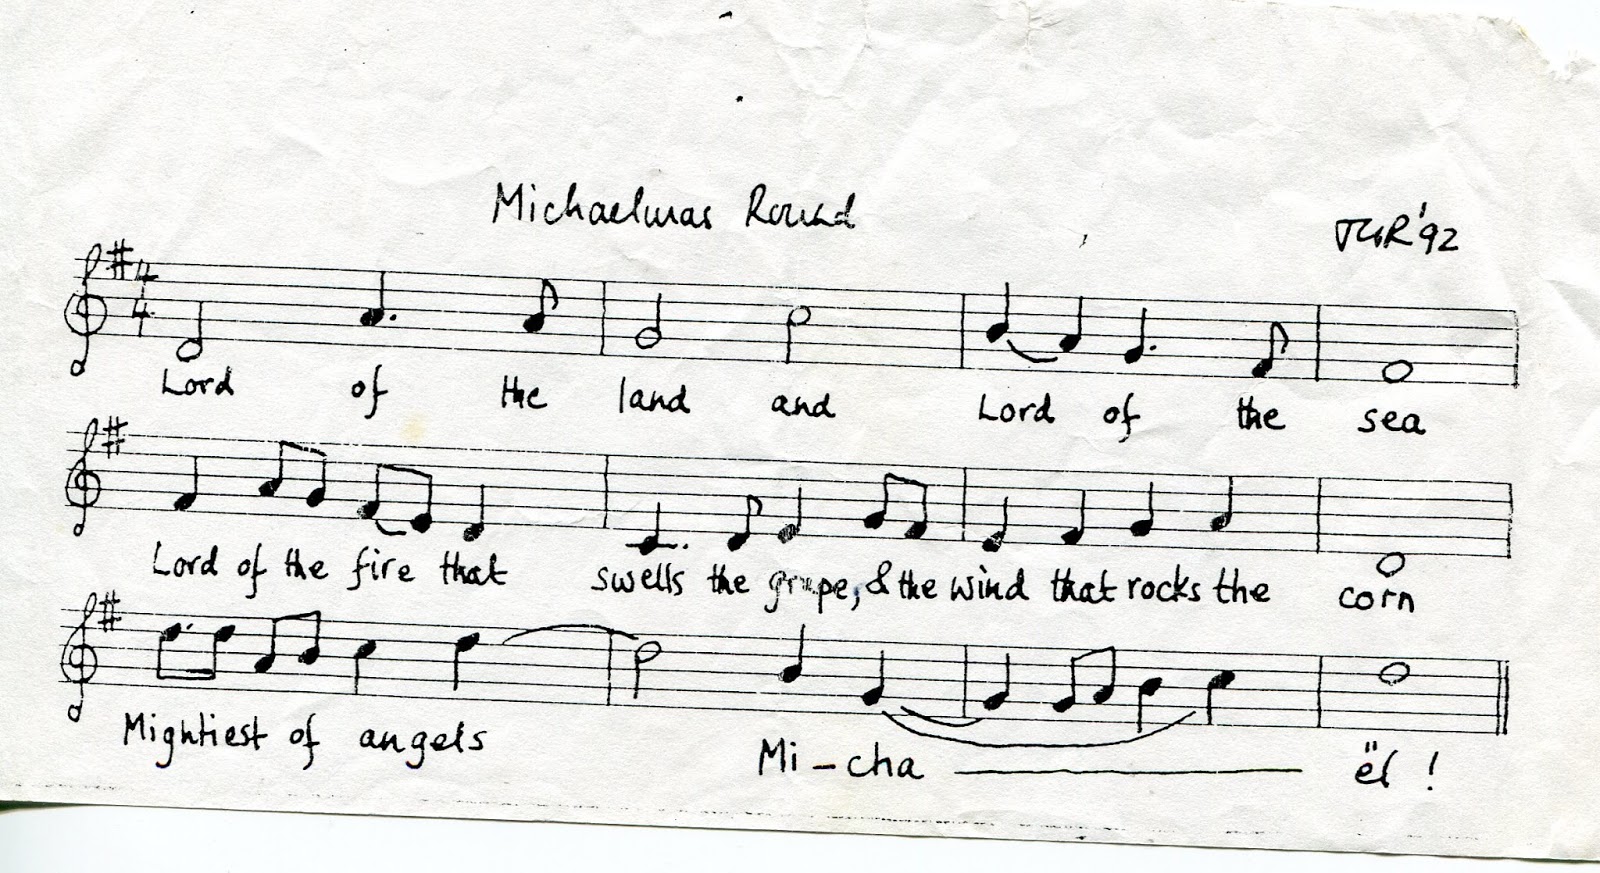 Michaelmas Round
'92
4
4
Lord of the land and Lord of the sea
Lord of the fire that swells the grape, & the wind that rocks the corn
Mightiest of angels Mi-cha ël!